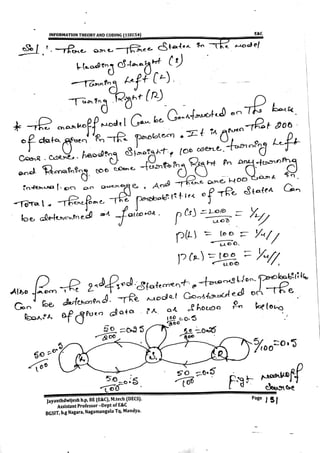 INFORMATION THEORY AND CODING (15EC54) E&C
Sol: There are Three States in The model
Heading Straight (S)
Turning Left (L).
Turning Right (R)
* The markoff model Can be Constructed on The basis
of data given in The problem. It is given That 200
Cars were heading Straight, 100 were turning Left
and Remaining 100 turning Right in any
interval on an average. And There are 400 Cars in
Total. Therefore The probabilities of The States Can
be determined as follows. p(S) = 200/400 = 1/2
p(L) = 100/400 = 1/4
p(R) = 100/400 = 1/4
Also from The 2nd & 3rd Statement, transition probabilities
Can be determined. The model Constructed on The
basis of given data is as Shown in below
100/200 = 0.5
50/200 = 0.25
50/200 = 0.25
50/100 = 0.5
50/100 = 0.5
50/100 = 0.5
50/100 = 0.5
L S R
Fig Markoff
Source
Jayanthdwijesh h.p, BE (E&C), M.tech (DECS).
Assistant Professor – Dept of E&C
BGSIT, b.g Nagara, Nagamangala Tq, Mandya.
Page 151